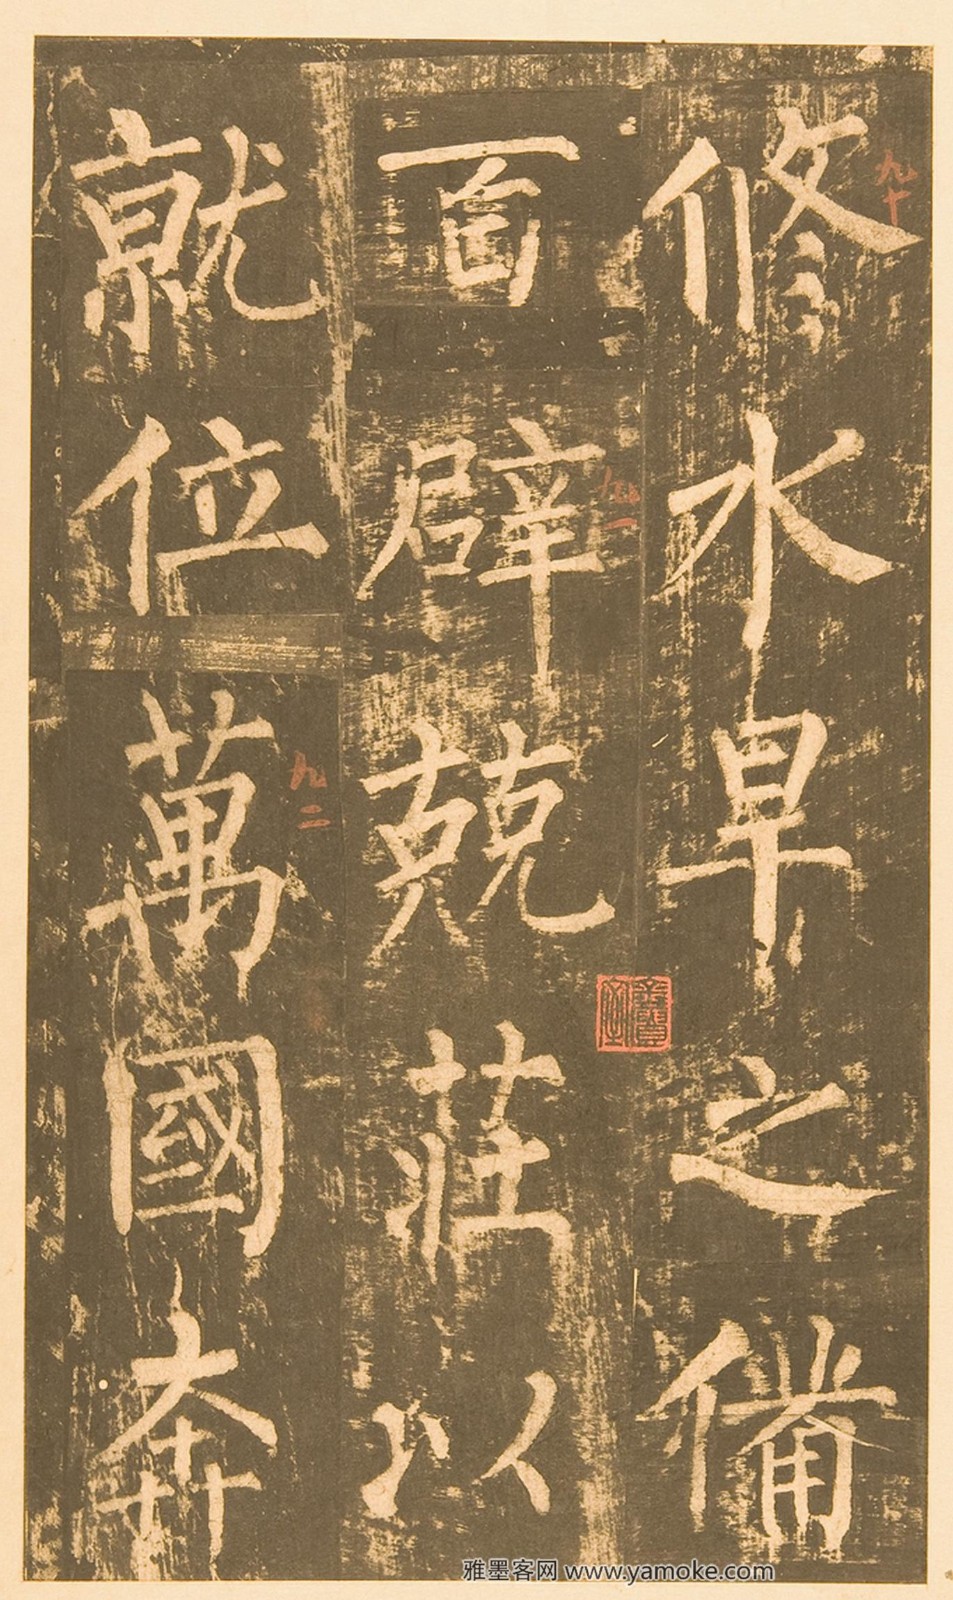 九十
修水旱之備
九一
百辟兢莊以
九二
就位萬國奔
雅墨客网 www.yamoke.com